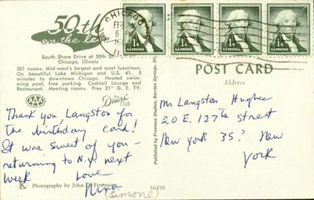 50th
on the Lake
South Shore Drive at 50th St.
Chicago, Illinois
301 rooms. Mid-west's largest and most luxurious.
On beautiful Lake Michigan and U.S. 41, 8
minutes to downtown Chicago. Heated swim-
ming pool, free parking. Cocktail Lounge and
Restaurant. Meeting rooms. Free 21" G. E. TV.
AAA
Thank you, Langston for
the birthday card!
It was sweet of you -
returning to N.Y. next
week Love
Nina
(Simone)
Photography by John
CHICAGO
1¢ 1¢ 1¢ 1¢
POST CARD
Address
Mr Langston Hughes
20 E. 127th street
New York 35, New
York